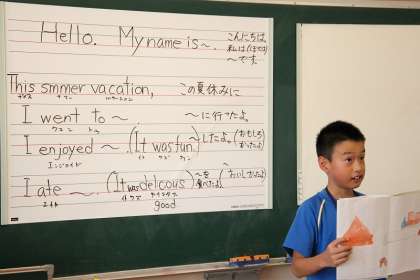 Hello. My name is ～. こんにちは
私は(ぼくは)
～です。
This smmer vacation, この夏休みに
ディス サマー
I went to ～. ～に行ったよ。
ウェント トゥ
I enjoyed ～. (It was fun.) ～したよ。(おもしろかったよ。)
エンジョイド イト ワズ ファン
I ate ～. (It was delcous) ～を食べたよ。(おいしかったよ)
エイト イト ワズ
good